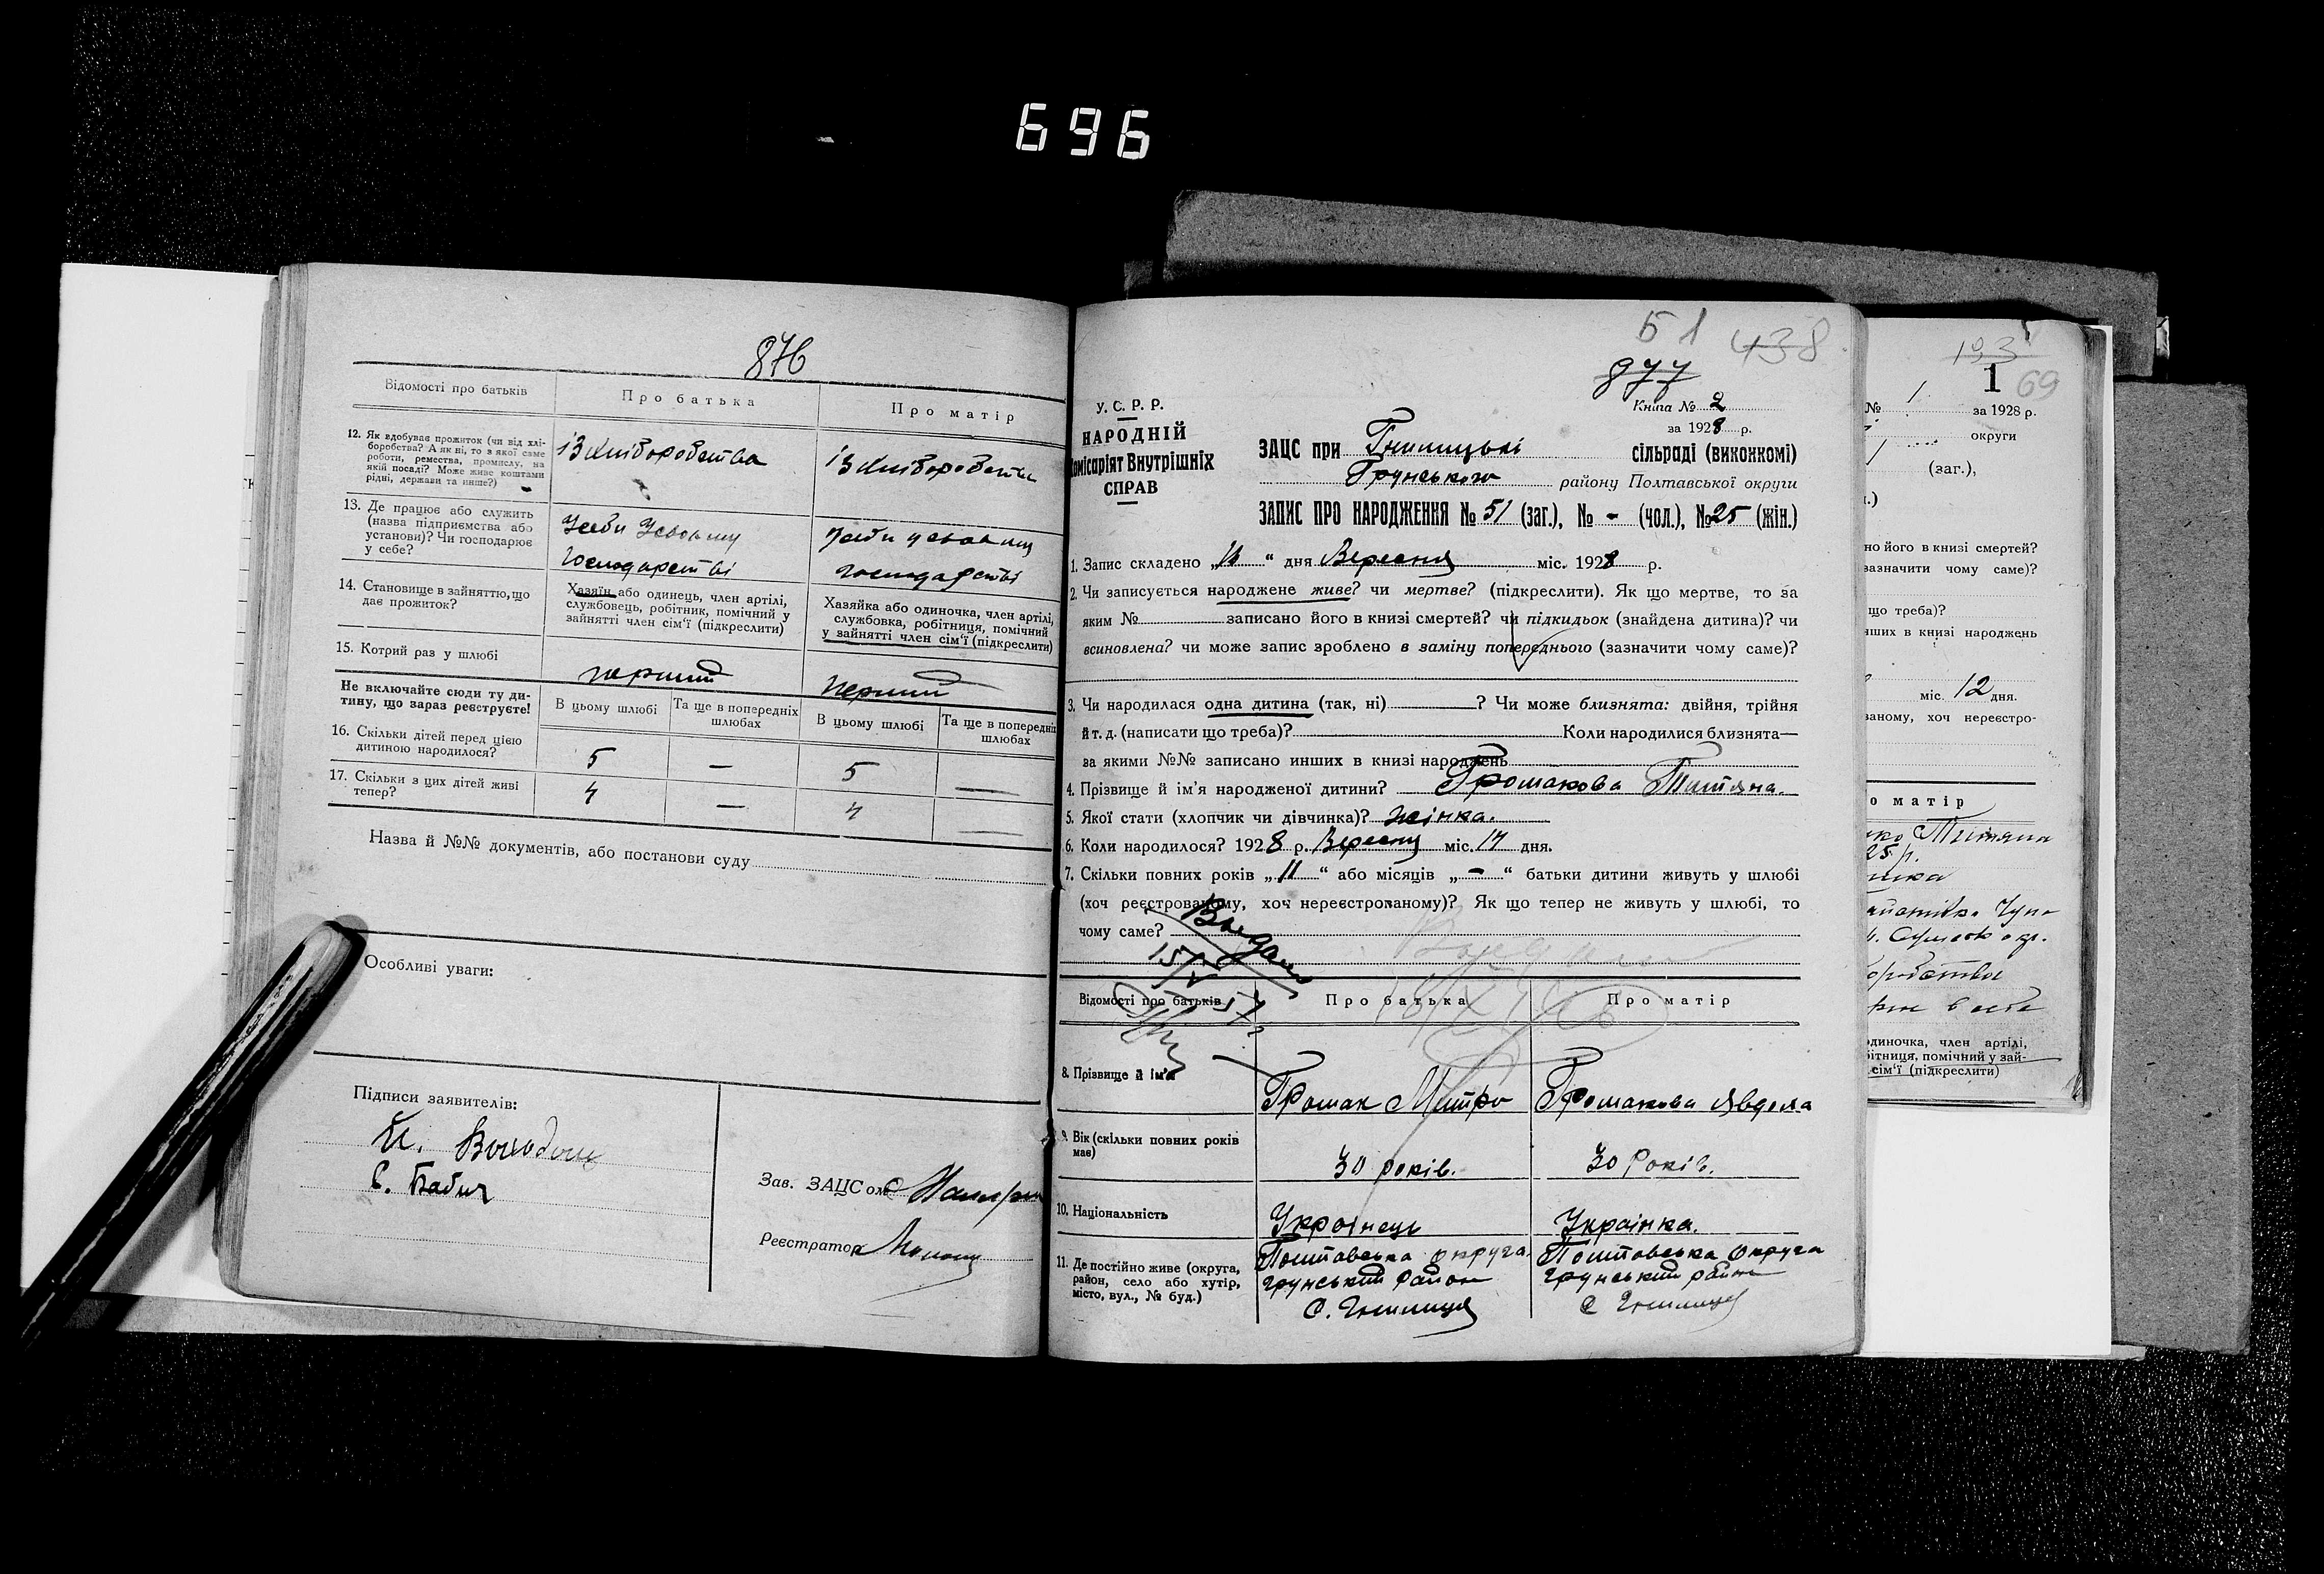 696
876
Відомості про батьків
Про батька
Про матір
12. Як здобуває прожиток (чи від хлі-
боробства? А як ні, то з якої саме
роботи, ремества, промислу, на
якій посаді? Може живе коштами
рідні, держави та инше?)
із хліборобства
із хліборобства
13. Де працює або служить
(назва підприємства або
установи)? Чи господарює
у себе?
господарстві
господарстві
14. Становище в зайняттю, що
дає прожиток?
Хазяїн або одинець, член артілі,
службовець, робітник, помічний у
зайнятті член сім'ї (підкреслити)
Хазяйка або одиночка, член артілі,
службовка, робітниця, помічний
у зайнятті член сім'ї (підкреслити)
15. Котрий раз у шлюбі
перший
перший
Не включайте сюди ту ди-
тину, що зараз реєструєте!
В цьому шлюбі
Та ще в попередніх
шлюбах
В цьому шлюбі
Та ще в попередніх
шлюбах
16. Скільки дітей перед цією
дитиною народилося?
5 — 5 —
17. Скільки з цих дітей живі
тепер?
4 — 4 —
Назва й №№ документів, або постанови суду
Особливі уваги:
Підписи заявителів:
С. Бабич
Зав. ЗАЦС ом
Реєстратор
51 438
877
Книга № 2
за 1928 р.
У. С. Р. Р.
НАРОДНІЙ
Комісаріят Внутрішніх
СПРАВ
ЗАЦС при Гнилицькі сільраді (виконкомі)
Грунського району Полтавської округи
ЗАПИС ПРО НАРОДЖЕННЯ № 51 (заг.), № - (чол.), № 25 (жін.)
1. Запис складено „ “ дня Вересня міс. 1928 р.
2. Чи записується народжене живе? чи мертве? (підкреслити). Як що мертве, то за
яким № записано його в книзі смертей? чи підкидьок (знайдена дитина)? чи
всиновлена? чи може запис зроблено в заміну попереднього (зазначити чому саме)?
3. Чи народилася одна дитина (так, ні) ? Чи може близнята: двійня, трійня
й т. д. (написати що треба)? Коли народилися близнята—
за якими №№ записано инших в книзі народжень
4. Прізвище й ім'я народженої дитини? Грошакова Титяна.
5. Якої стати (хлопчик чи дівчинка)? жінка.
6. Коли народилося? 1928 р. Вересня міс. 14 дня.
7. Скільки повних років „11“ або місяців „-“ батьки дитини живуть у шлюбі
(хоч реєстрованому, хоч нереєстрованому)? Як що тепер не живуть у шлюбі, то
чому саме?
Відомості про батьків
Про батька
Про матір
8. Прізвище й ім'я
Грошак Митро
Грошакова Явдоха
9. Вік (скільки повних років
має)
30 років.
30 Років.
10. Національність
Українець
Українка.
11. Де постійно живе (округа,
район, село або хутір,
місто, вул., № буд.)
Полтавська округа
грунський район
с. Гнилиця
Полтавська округа
грунський район
с Гнилиця
193
1 69
№ 1 за 1928 р.
округи
(заг.),
но його в книзі смертей?
зазначити чому саме)?
що треба)?
нших в книзі народжень
міс. 12 дня.
ваному, хоч нереєстро-
о матір
Титяна
25 р.
одиночка, член артілі,
бітниця, помічний у зай-
сім'ї (підкреслити)